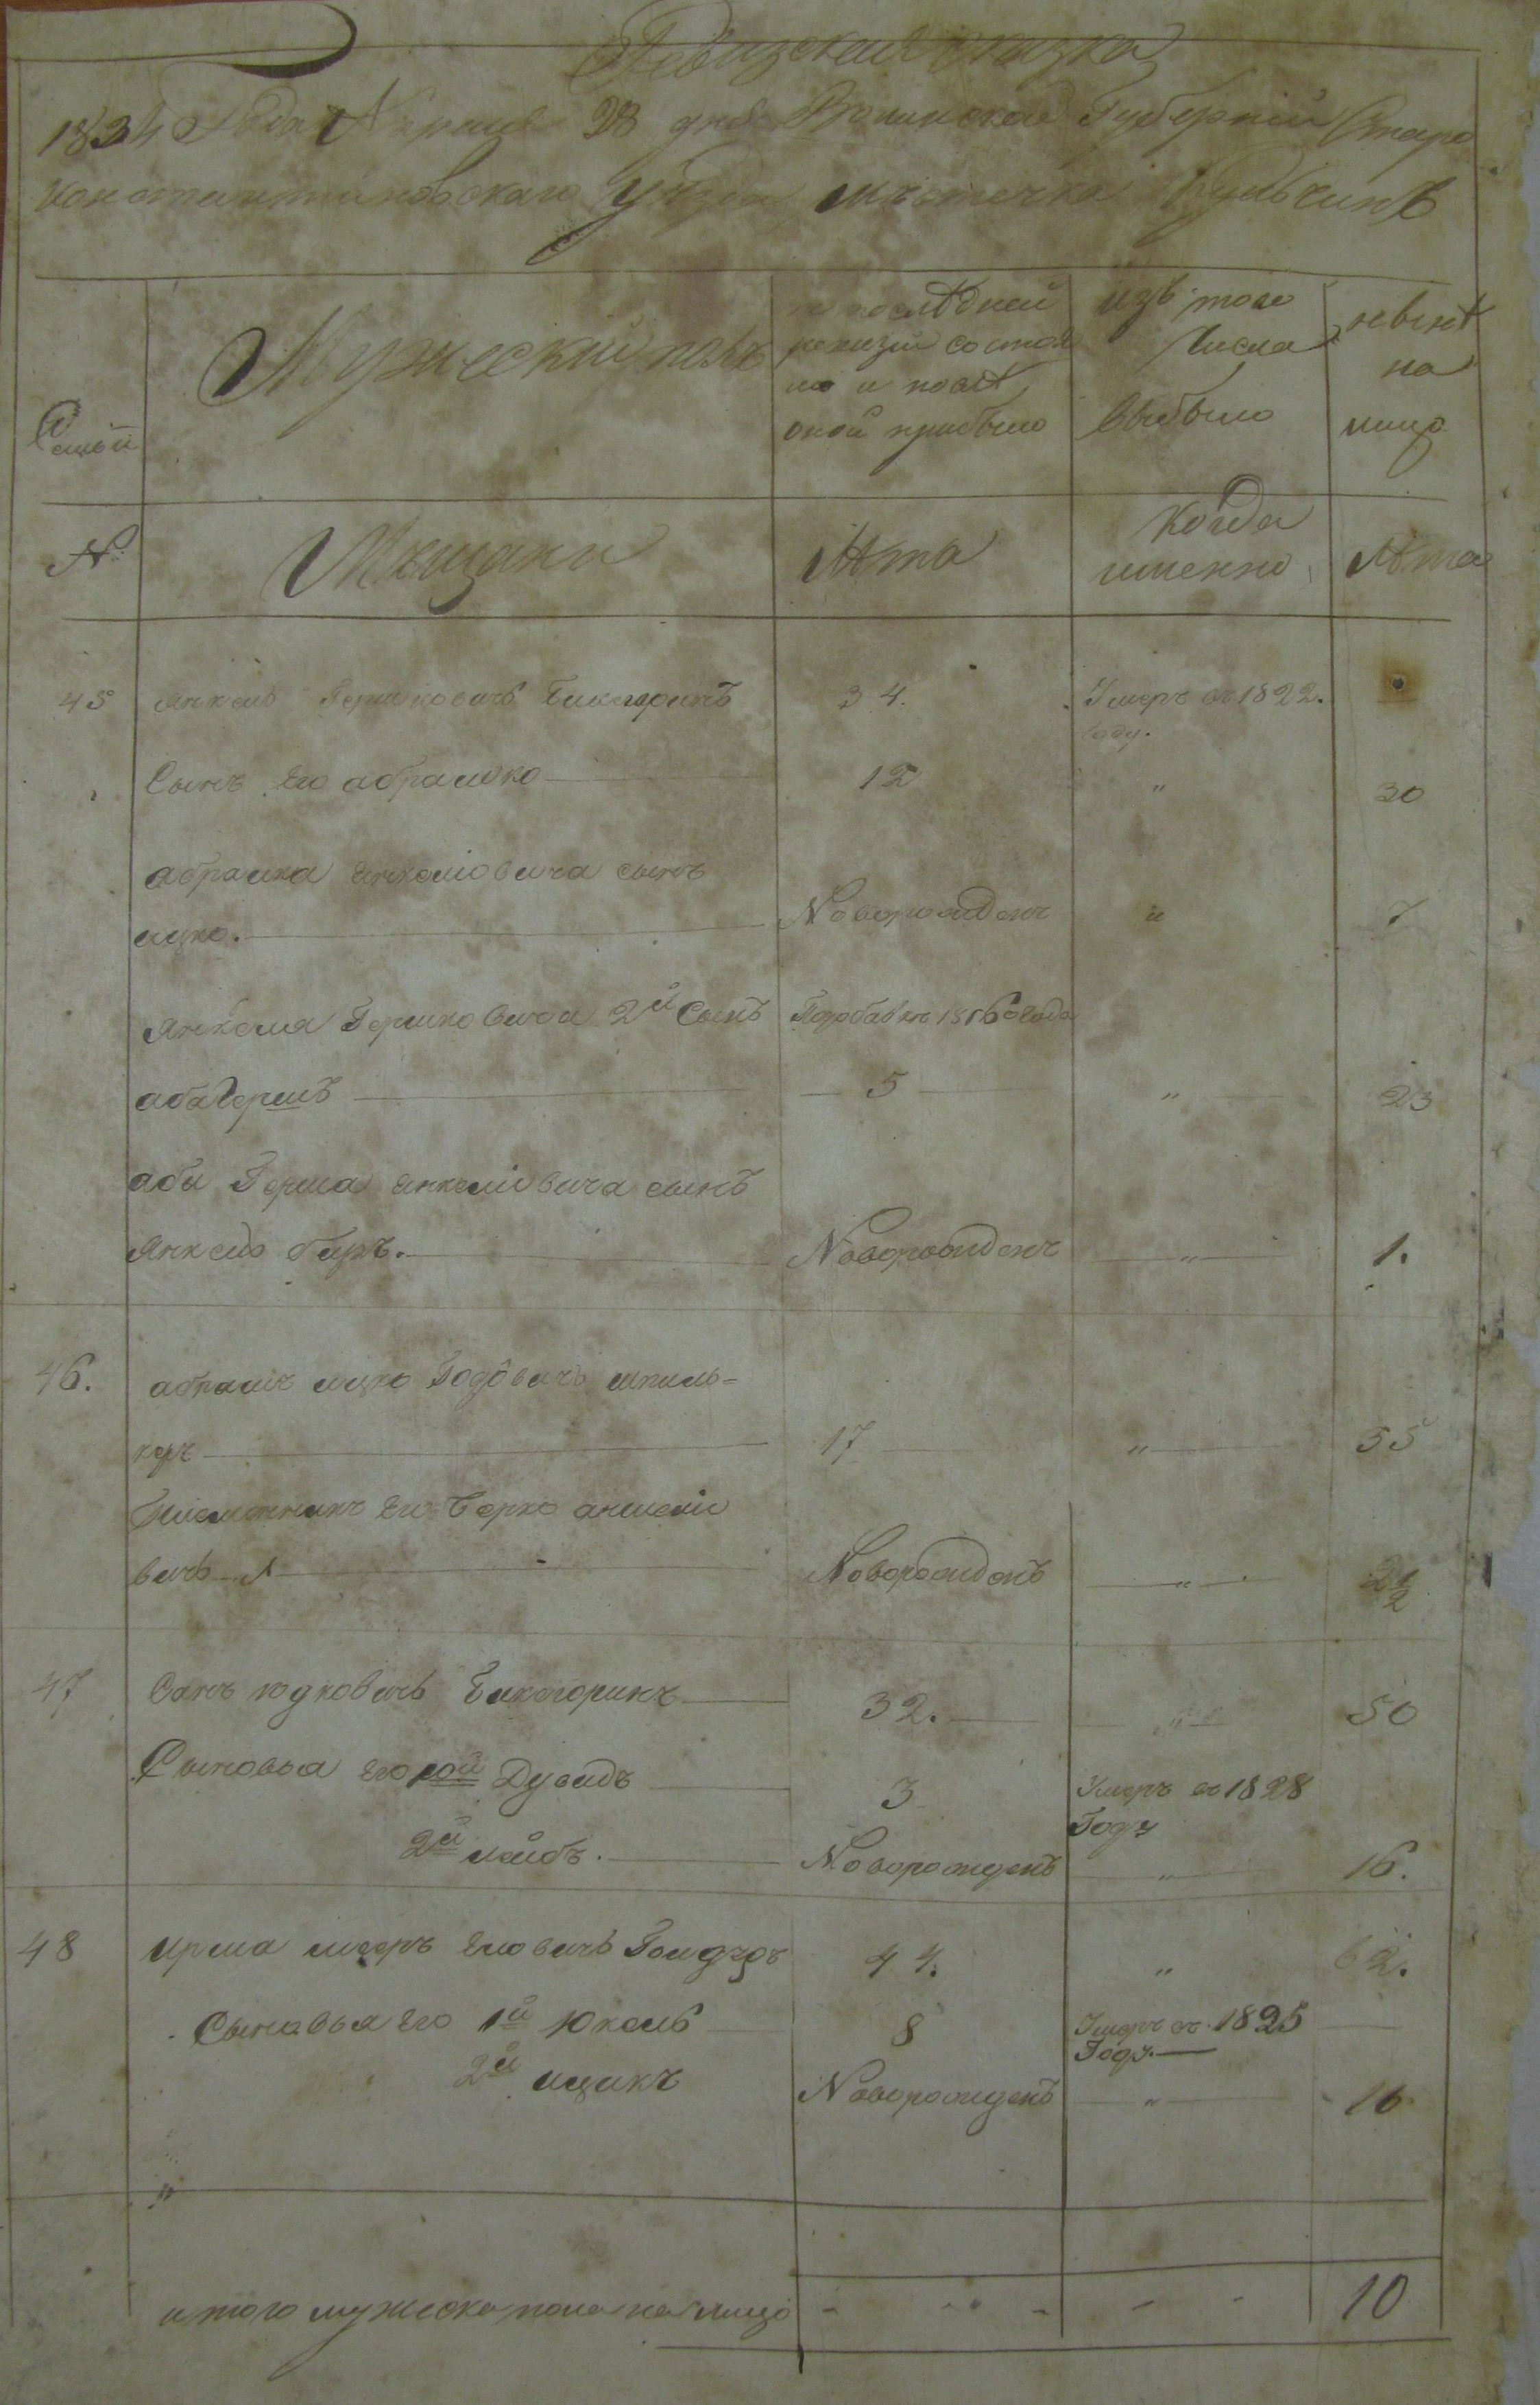 Ревизская сказка
1834 Года Апреля 28 дня Волынской Губернии Старо
константиновскаго Уѣзда мѣстечка Кульчинъ
Семьи
Мужескій полъ
по послѣдней
ревизіи состоя
ло и послѣ
оной прибыло
Изъ того
Числа
выбыло
нынѣ
на
лицо
№
Мѣщани
Лѣта
Когда
именно
Лѣта
45 Янкель Гершковичъ 34. Умеръ въ 1822.
году.
Сынъ его абрамко 12 " 30
абрамка Янкеліовича сынъ
ицко. Новорожденъ " 7
Янкеля Гершковича 2й Сынъ 1816 года
аба Гершъ 5 " 23
абы Герша Янкеліовича сынъ
Янкель беръ. Новорожденъ " 1.
46. абрамъ ицко шпиль=
керъ 17 " 35
Племянникъ его Берко аншелio
вичъ Новорожденъ "
47 юдковичъ 32. " 50
Сыновья его Дувидъ 3 Умеръ въ 1828
Году
2й лейбъ. Новорожденъ " 16.
48 Ирша мееръ 44. " 62.
Сыновья его 1й Юкель 8 Умеръ въ 1825
Году.
2й ицикъ Новорожденъ " 16
"
итого мужеска пола на лицо 10